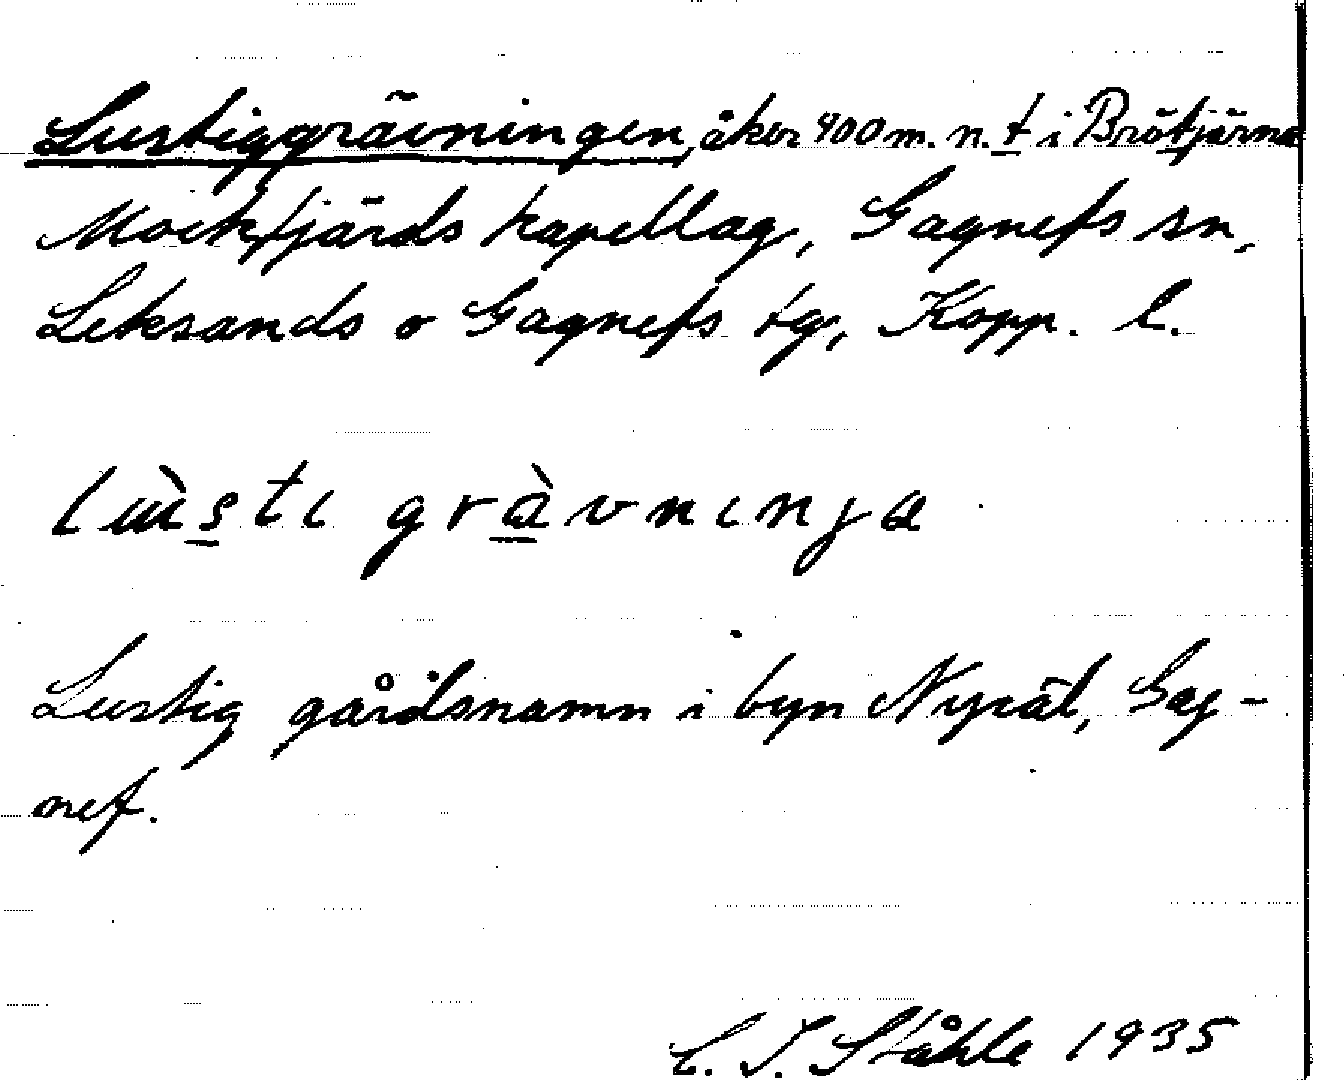 Lustiggrävningen, åker 400 m. n. t i Brötjärna
Mockfjärds kapellag, Gagnefs sn,
Leksands o Gagnefs tg, Kopp. l.
lùsti gràvninja
Lustig gårdsnamn i byn Nysäl, Gag-
nef.
C. I. Ståhle 1935